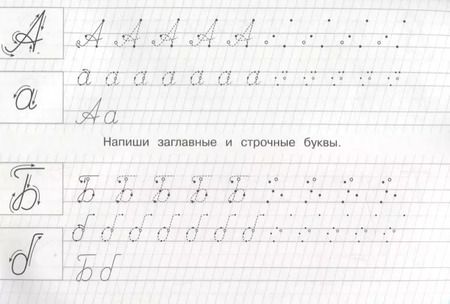 А А А А А А
а а а а а а а а
Аа
Напиши заглавные и строчные буквы.
Б Б Б Б Б Б
б б б б б б б б
Бб